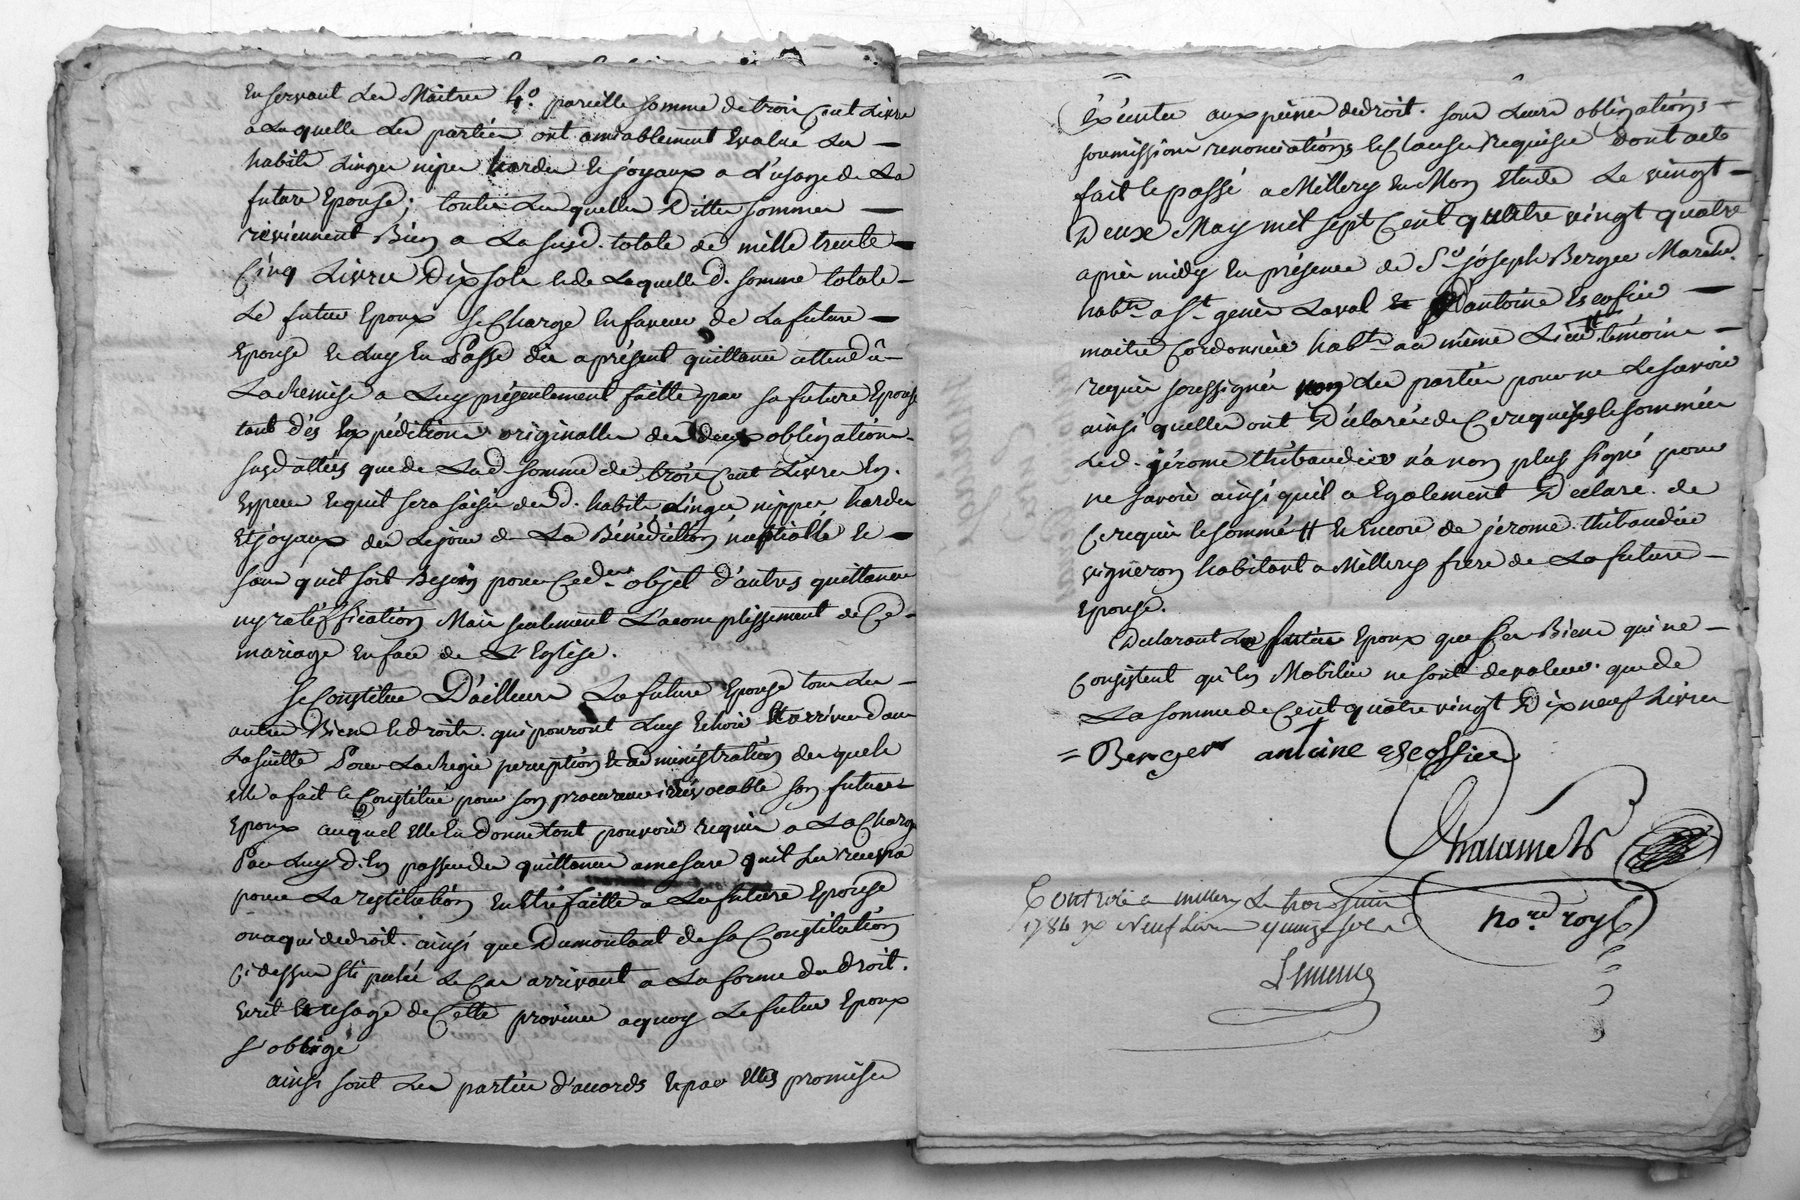 en servant les Maitres 4.° pareille somme de trois Cent Livres
a Laquelle les parties ont amiablement Evalué Les
habits Linges nipes hardes et joyaux a L'usage de La
future Epouse; toutes Lesquelles Dittes sommes
reviennent Bien a La susd. totale de mille trente
Cinq Livres Dix sols et de Laquelle d. somme totale
Le futur Epoux se Charge en faveur de La future
Epouse et Luy En Passe dès aprésent quittance attendû
La Remise a Luy présentement faitte par sa future Epouse
tant dés Expéditions originalles des deux obligations
susdattées que de Lad. somme de trois Cent Livres En
Especes et quil sera saisi desd. habits Linges nippes hardes
Et joyaux dès Le jour de La Bénédiction nuptialle et
sans quil soit Besoin pour Ced. objet d'autres quittances
ny ratiffication Mais seulement L'acomplissement de Ce
mariage En face de Ste Eglise.
Se Constitue D'ailleurs La future Epouse tous Les
autres Biens et droits qui pourront Luy Echoir Et arriver dans
La suitte Pour La Regie perception et administration des quels
elle a fait et Constitué pour son procureur irrévocable son futur
Epoux auquel elle En donne tout pouvoir requis a La Charge
Par Luy d'En passer des quittances amesure quil Les recevra
pour La restitution En Etre faitte a La future Epouse
ou a qui de droit. ainsi que Du montant de sa Constitution
Ci dessus stipulée Le Cas arrivant a La forme du droit
Ecrit Et usage de Cette province a quoy Le futur Epoux
s'obligé
ainsi sont Les parties d'accords et par Elles promis
Exécuter aux peines de droit. sous Leurs obligations
soumissions renonciations et Clauses requises Dont acte
fait et passé a Millery En Mon Etude Le vingt
Deux May mil sept Cent quatre vingt quatre
après midy En présence de Sr. jóseph Berger Marchd.
habtn. a St. genis Laval et d'antoine Escofier
maitre Cordonnier habtn. au même Lieu # témoins
requis soussignés non Les parties pour ne Le savoir
ainsi quelles ont Déclarés de Ce requises et sommées
Led. jérome thibaudier n'a non plus signé pour
ne savoir ainsi quil a Egalement Declaré de
Ce requis et sommé # et Encore de jérome thibaudier
vigneron habitant a Millery frere de La future
Epouse.
Declarant Le futur Epoux que ses Biens qui ne
Consistent qu'En Mobilier ne sont de valeur que de
La somme de Cent quatre vingt Dix neuf Livres
= Berger antoine escoffier
Chalamet
no.re royl
Controlé a millery Le trois juin
1784 Rx Neuf Livres quinze sols